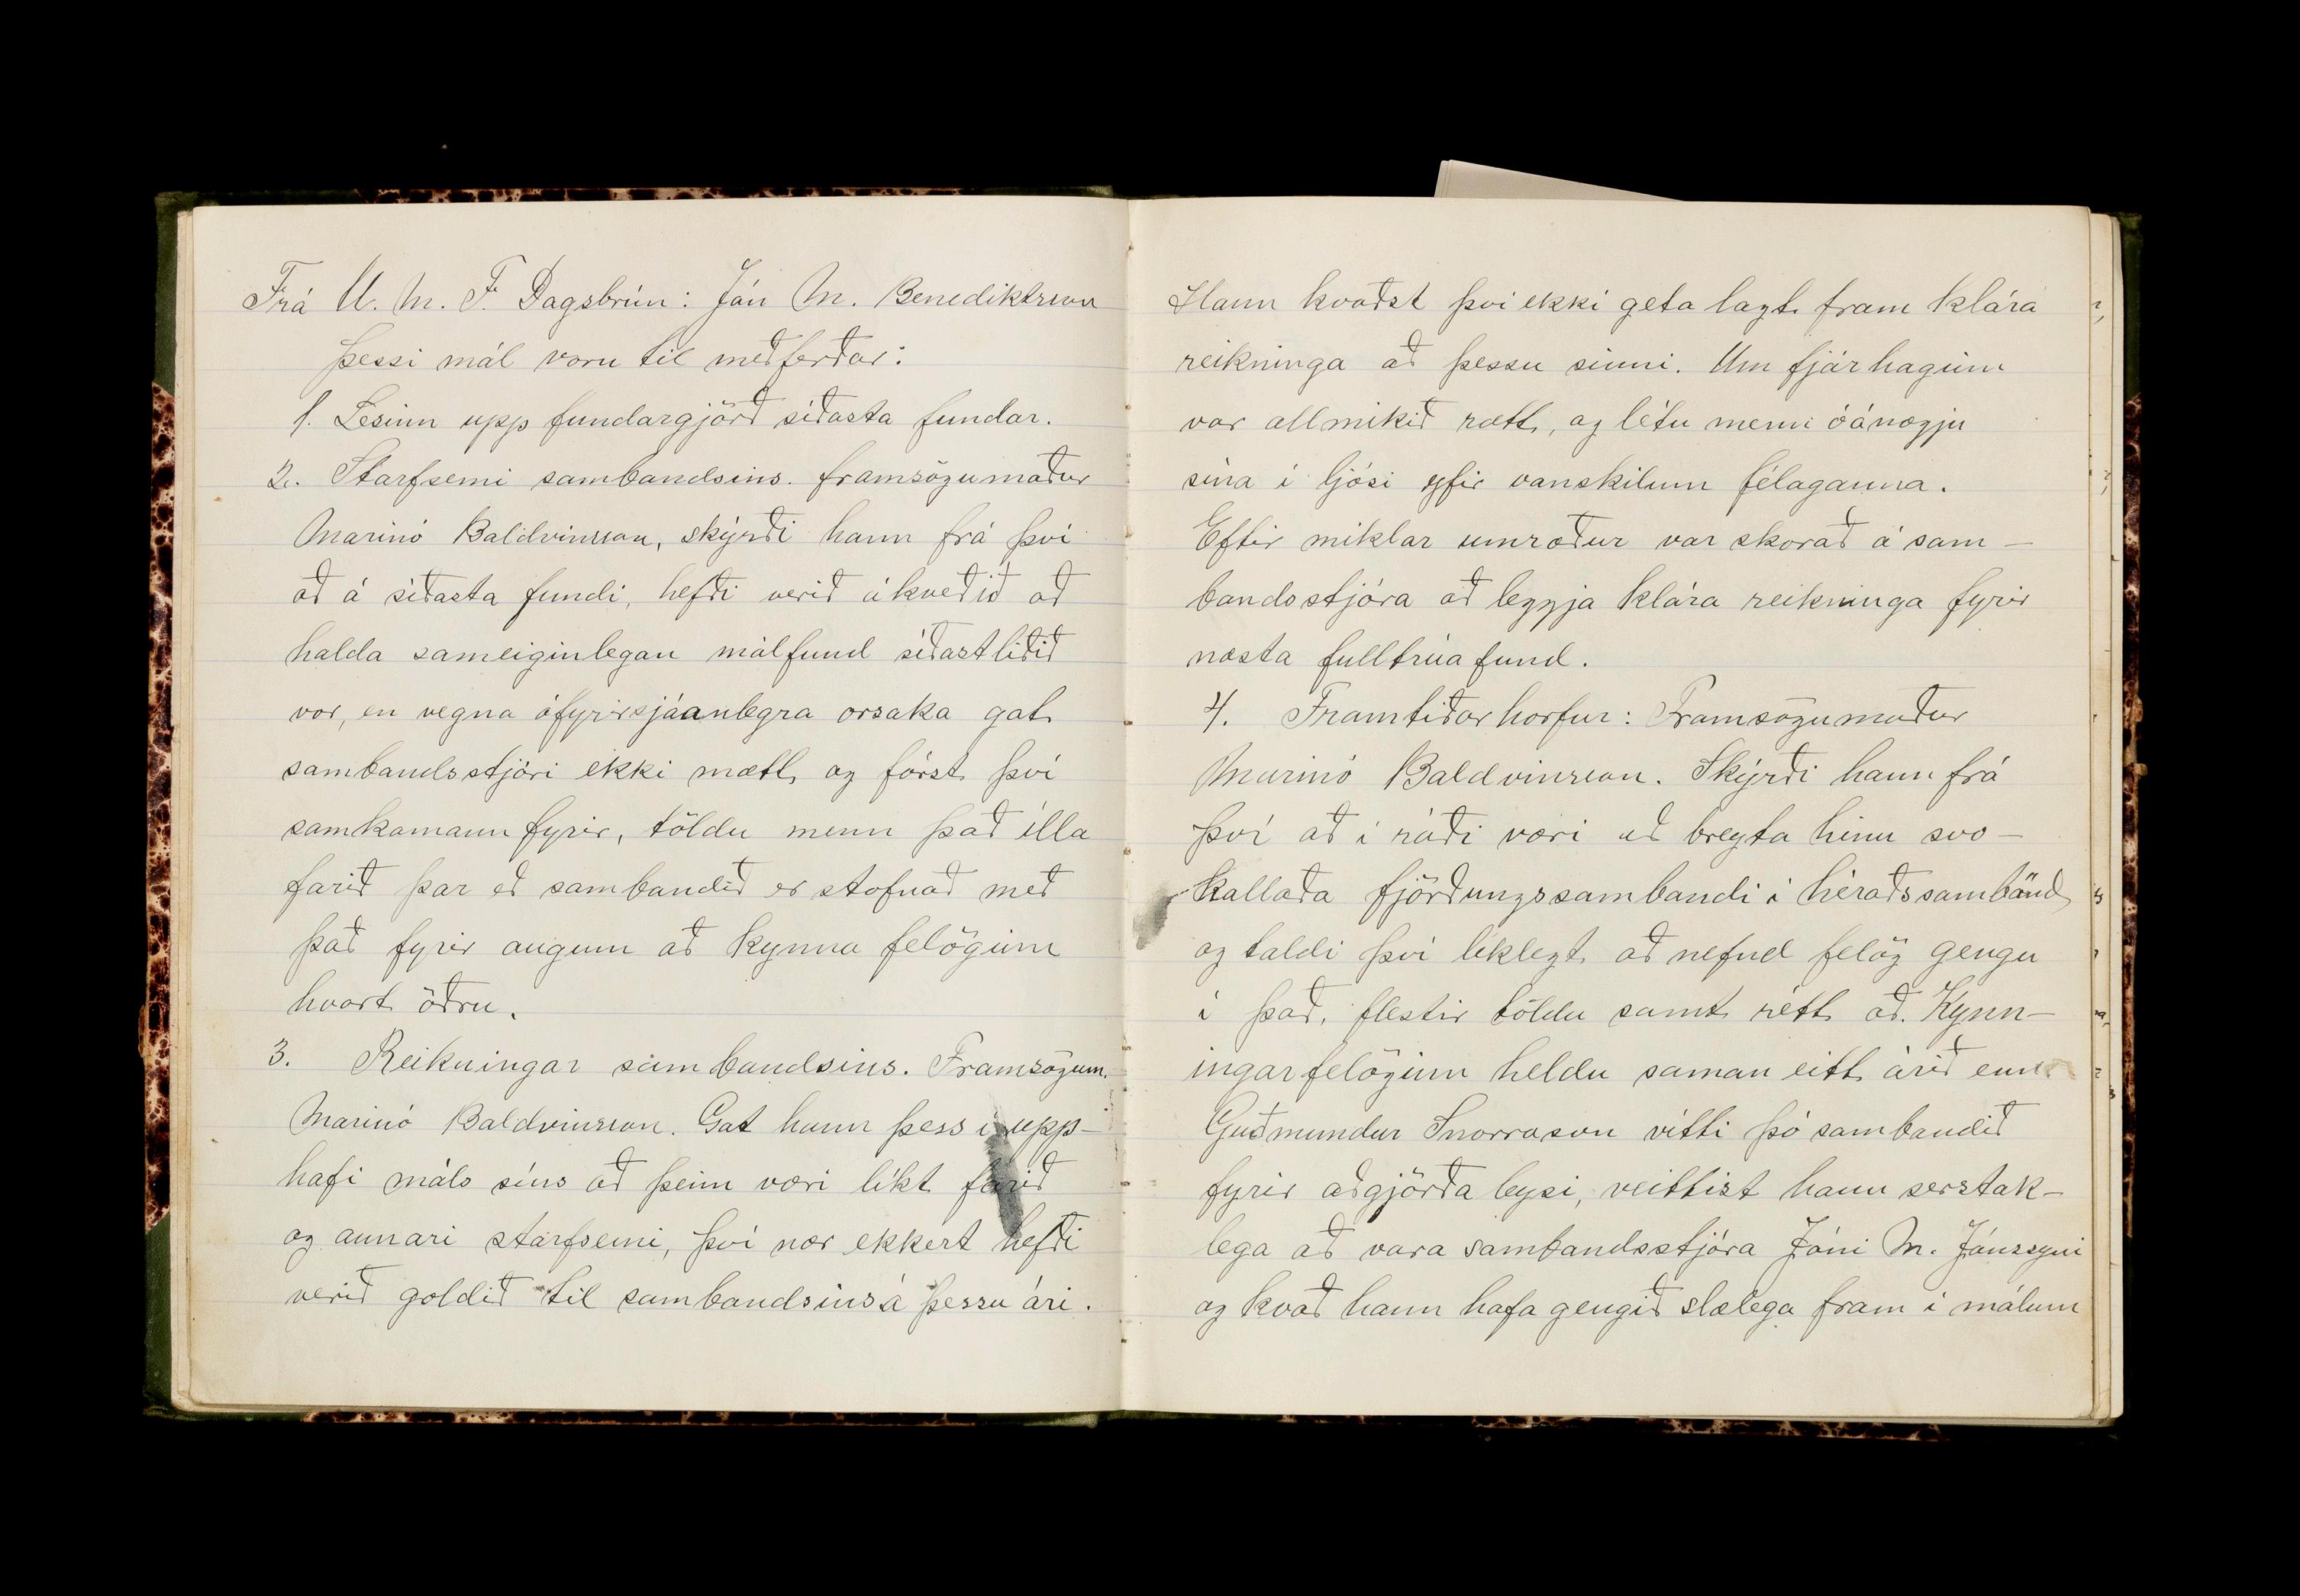 Frá U. M. F. Dagsbrún: Jón M. Benediktsson
Þessi mál voru til meðferðar:
1. Lesinn upp fundargjörð síðasta fundar.
2. Starfsemi sambandsins. framsögumaður
Marinó Baldvinsson, skýrði hann frá því
að á síðasta fundi, hefði verið ákveðið að
halda sameiginlegan málfund síðastliðið
vor, en vegna ófyrirsjáanlegra orsaka gat
sambandsstjóri ekki mætt og fórst því
samkoman fyrir, töldu menn það illa
farið þar eð sambandið er stofnað með
það fyrir augum að kynna felögin
hvort öðru.
3. Reikningar sambandsins. Framsögum.
Marinó Baldvinsson. Gat hann þess i upp-
hafi máls síns að þeim væri líkt farið
og annari starfsemi, því nær ekkert hefði
verið goldið til sambandsins á þessu ári.
Hann kvaðst því ekki geta lagt fram klára
reikninga að þessu sinni. Um fjárhaginn
var allmikið rætt, og létu menn óánægju
sína i ljósi yfir vanskilum félaganna.
Eftir miklar umræður var skorað á sam-
bandsstjóra að leggja klára reikninga fyrir
næsta fulltrúafund.
4. Framtiðarhorfur: Framsögumaður
Marinó Baldvinsson. Skýrði hann frá
því að i ráði væri að breyta hinu svo-
kallaða fjórðungssambandi i héraðssamband,
og taldi því líklegt að nefnd felög gengu
i það, flestir töldu samt rétt að Kynn-
ingarfelögin heldu saman eitt árið enn
Guðmundur Snorrason vítti þó sambandið
fyrir aðgjörðaleysi, veittist hann serstak-
lega að vara sambandsstjóra Jóni M. Jónssyni
og kvað hann hafa gengið slælega fram i málum